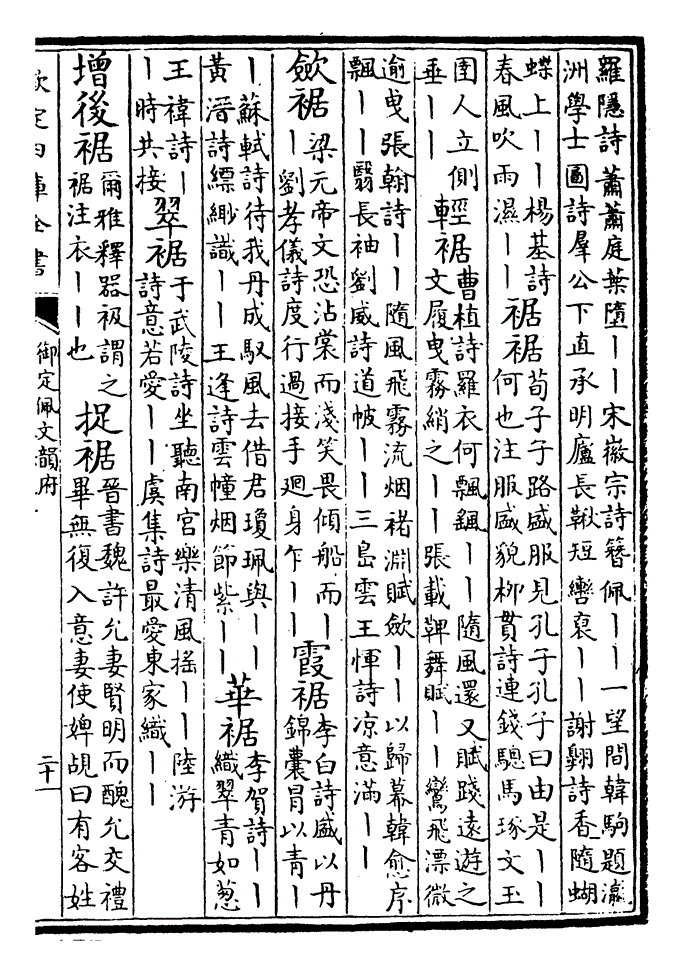 羅隱詩蕭蕭庭葉墮｜｜宋徽宗詩簪佩｜｜一望間韓駒題瀛
洲學士圖詩羣公下直承明廬長靴短轡裒｜｜謝翺詩香隨蝴
蝶上｜｜楊基詩
春風吹雨濕｜｜
裾裾
荀子子路盛服見孔子孔子曰由是｜｜
何也注服盛貌栁貫詩連錢驄馬琢文玉
圉人立側
垂｜｜
輕裾
曹植詩羅衣何飄颻｜｜隨風還又賦踐遠遊之
文履曳霧綃之｜｜張載鞞舞賦｜｜鸞飛漂微
逾曳張翰詩｜｜隨風飛霧流烟褚淵賦斂｜｜以歸幕韓愈序
飄｜｜翳長袖劉威詩道帔｜｜三島雲王惲詩凉意滿｜｜
斂裾
梁元帝文恐沾裳而淺笑畏傾船而｜
｜劉孝儀詩度行過接手廻身乍｜｜
霞裾
李白詩盛以丹
錦囊冒以青｜
｜蘇軾詩待我丹成馭風去借君瓊珮與｜｜
黃溍詩縹緲識｜｜王逢詩雲幢烟節紫｜｜
華裾
李賀詩｜｜
織翠青如葱
王褘詩｜
｜時共接
翠裾
于武陵詩坐聽南宮樂清風搖｜｜陸游
詩意若愛｜｜虞集詩最愛東家織｜｜
增後裾
爾雅釋器衱謂之
裾注衣｜｜也
捉裾
晉書魏許允妻賢明而醜允交禮
畢無復入意妻使婢覘曰有客姓
欽定四庫全書
御定佩文韻府
二十一